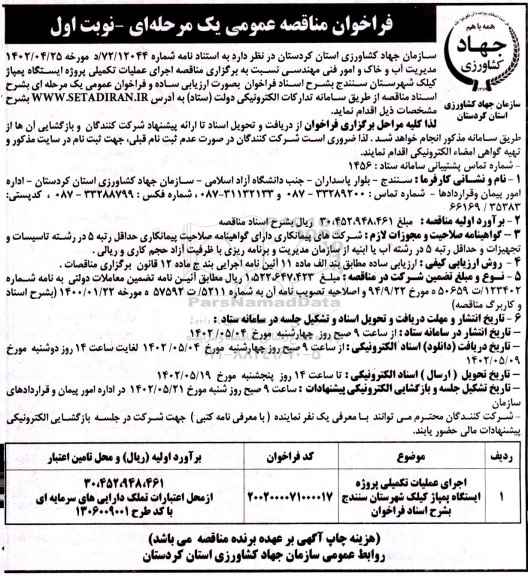 فراخوان مناقصه عمومی یک مرحله‌ای -نوبت اول
همه با هم
جهاد
کشاورزی
سازمان جهاد کشاورزی
استان کردستان
سازمان جهاد کشاورزی استان کردستان در نظر دارد به استناد نامه شماره ۷۲/۱۲۰۴۴/د مورخه ۱۴۰۲/۰۴/۲۵
مدیریت آب و خاک و امور فنی مهندسی نسبت به برگزاری مناقصه اجرای عملیات تکمیلی پروژه ایستگاه پمپاژ
کیلک شهرستان سنندج بشرح اسناد فراخوان بصورت ارزیابی ساده و فراخوان عمومی یک مرحله ای بشرح
اسناد مناقصه از طریق سامانه تدارکات الکترونیکی دولت (ستاد) به آدرس WWW.SETADIRAN.IR بشرح
مشخصات ذیل اقدام نماید.
لذا کلیه مراحل برگزاری فراخوان از دریافت و تحویل اسناد تا ارائه پیشنهاد شرکت کنندگان و بازگشایی آن ها از
طریق سامانه مذکور انجام خواهد شد . لذا ضروری است شرکت کنندگان در صورت عدم ثبت نام قبلی، جهت ثبت نام در سایت مذکور و
تهیه گواهی امضاء الکترونیکی اقدام نمایند.
- شماره تماس پشتیبانی سامانه ستاد : ۱۴۵۶
۱ - نام و نشانی کارفرما : سنندج - بلوار پاسداران - جنب دانشگاه آزاد اسلامی - سازمان جهاد کشاورزی استان کردستان - اداره
امور پیمان وقراردادها - شماره تماس : ۳۳۲۸۹۲۰۰ - ۰۸۷ و ۳۱۱۳۲۱۳۳-۰۸۷ شماره فکس : ۳۳۲۸۸۷۹۹ - ۰۸۷ ، کدپستی:
۳۵۳۸۳ / ۶۶۱۶۹
۲ - برآورد اولیه مناقصه : مبلغ ۳۰،۴۵۲،۹۴۸،۴۶۱ ریال بشرح اسناد مناقصه
۳ - گواهینامه صلاحیت و مجوزات لازم : شرکت های پیمانکاری دارای گواهینامه صلاحیت پیمانکاری حداقل رتبه ۵ در رشته تاسیسات و
تجهیزات و حداقل رتبه ۵ در رشته آب یا ابنیه از سازمان مدیریت و برنامه ریزی با ظرفیت آزاد حجم کاری و ریالی .
۴ - روش ارزیابی کیفی : ارزیابی ساده مطابق بند الف ماده ۱۱ آئین نامه اجرایی بند ج ماده ۱۲ قانون برگزاری مناقصات .
۵ - نوع و مبلغ تضمین شرکت در مناقصه : مبلغ ۱،۵۲۲،۶۴۷،۴۲۳ ریال مطابق آئین نامه تضمین معاملات دولتی به نامه شماره
۱۲۳۴۰۲/ت ۵۰۶۵۹ ه مورخ ۹۴/۹/۲۲ و اصلاحیه تصویب نامه آن به شماره ۵۲۱۱/ت ۵۷۵۹۲ ه مورخ ۱۴۰۰/۰۱/۲۲ (بشرح اسناد
و کاربرگ مناقصه)
۶ - تاریخ انتشار و مهلت دریافت و تحویل اسناد و تشکیل جلسه در سامانه ستاد :
- تاریخ انتشار در سامانه ستاد : از ساعت ۹ صبح روز چهارشنبه مورخ ۱۴۰۲/۰۵/۰۴
- تاریخ دریافت (دانلود) اسناد الکترونیکی : از ساعت ۹ صبح روز چهارشنبه مورخ ۱۴۰۲/۰۵/۰۴ لغایت ساعت ۱۴ روز دوشنبه مورخ
۱۴۰۲/۰۵/۰۹
- تاریخ تحویل ( ارسال ) اسناد الکترونیکی : تا ساعت ۱۴ روز پنجشنبه مورخ ۱۴۰۲/۰۵/۱۹
- تاریخ تشکیل جلسه و بازگشایی الکترونیکی پیشنهادات : ساعت ۹ صبح روز شنبه مورخ ۱۴۰۲/۰۵/۲۱ در اداره امور پیمان و قراردادهای
سازمان
- شرکت کنندگان محترم می توانند با معرفی یک نفر نماینده ( با معرفی نامه کتبی ) جهت شرکت در جلسه بازگشایی الکترونیکی
پیشنهادات مالی حضور یابند.
ردیف موضوع کد فراخوان برآورد اولیه (ریال) و محل تامین اعتبار
۱ اجرای عملیات تکمیلی پروژه ایستگاه پمپاژ کیلک شهرستان سنندج بشرح اسناد فراخوان ۲۰۰۲۰۰۰۰۷۱۰۰۰۰۱۷ ۳۰،۴۵۲،۹۴۸،۴۶۱ ازمحل اعتبارات تملک دارایی های سرمایه ای با کد طرح ۱۳۰۶۰۰۹۰۰۱
(هزینه چاپ آگهی بر عهده برنده مناقصه می باشد)
روابط عمومی سازمان جهاد کشاورزی استان کردستان